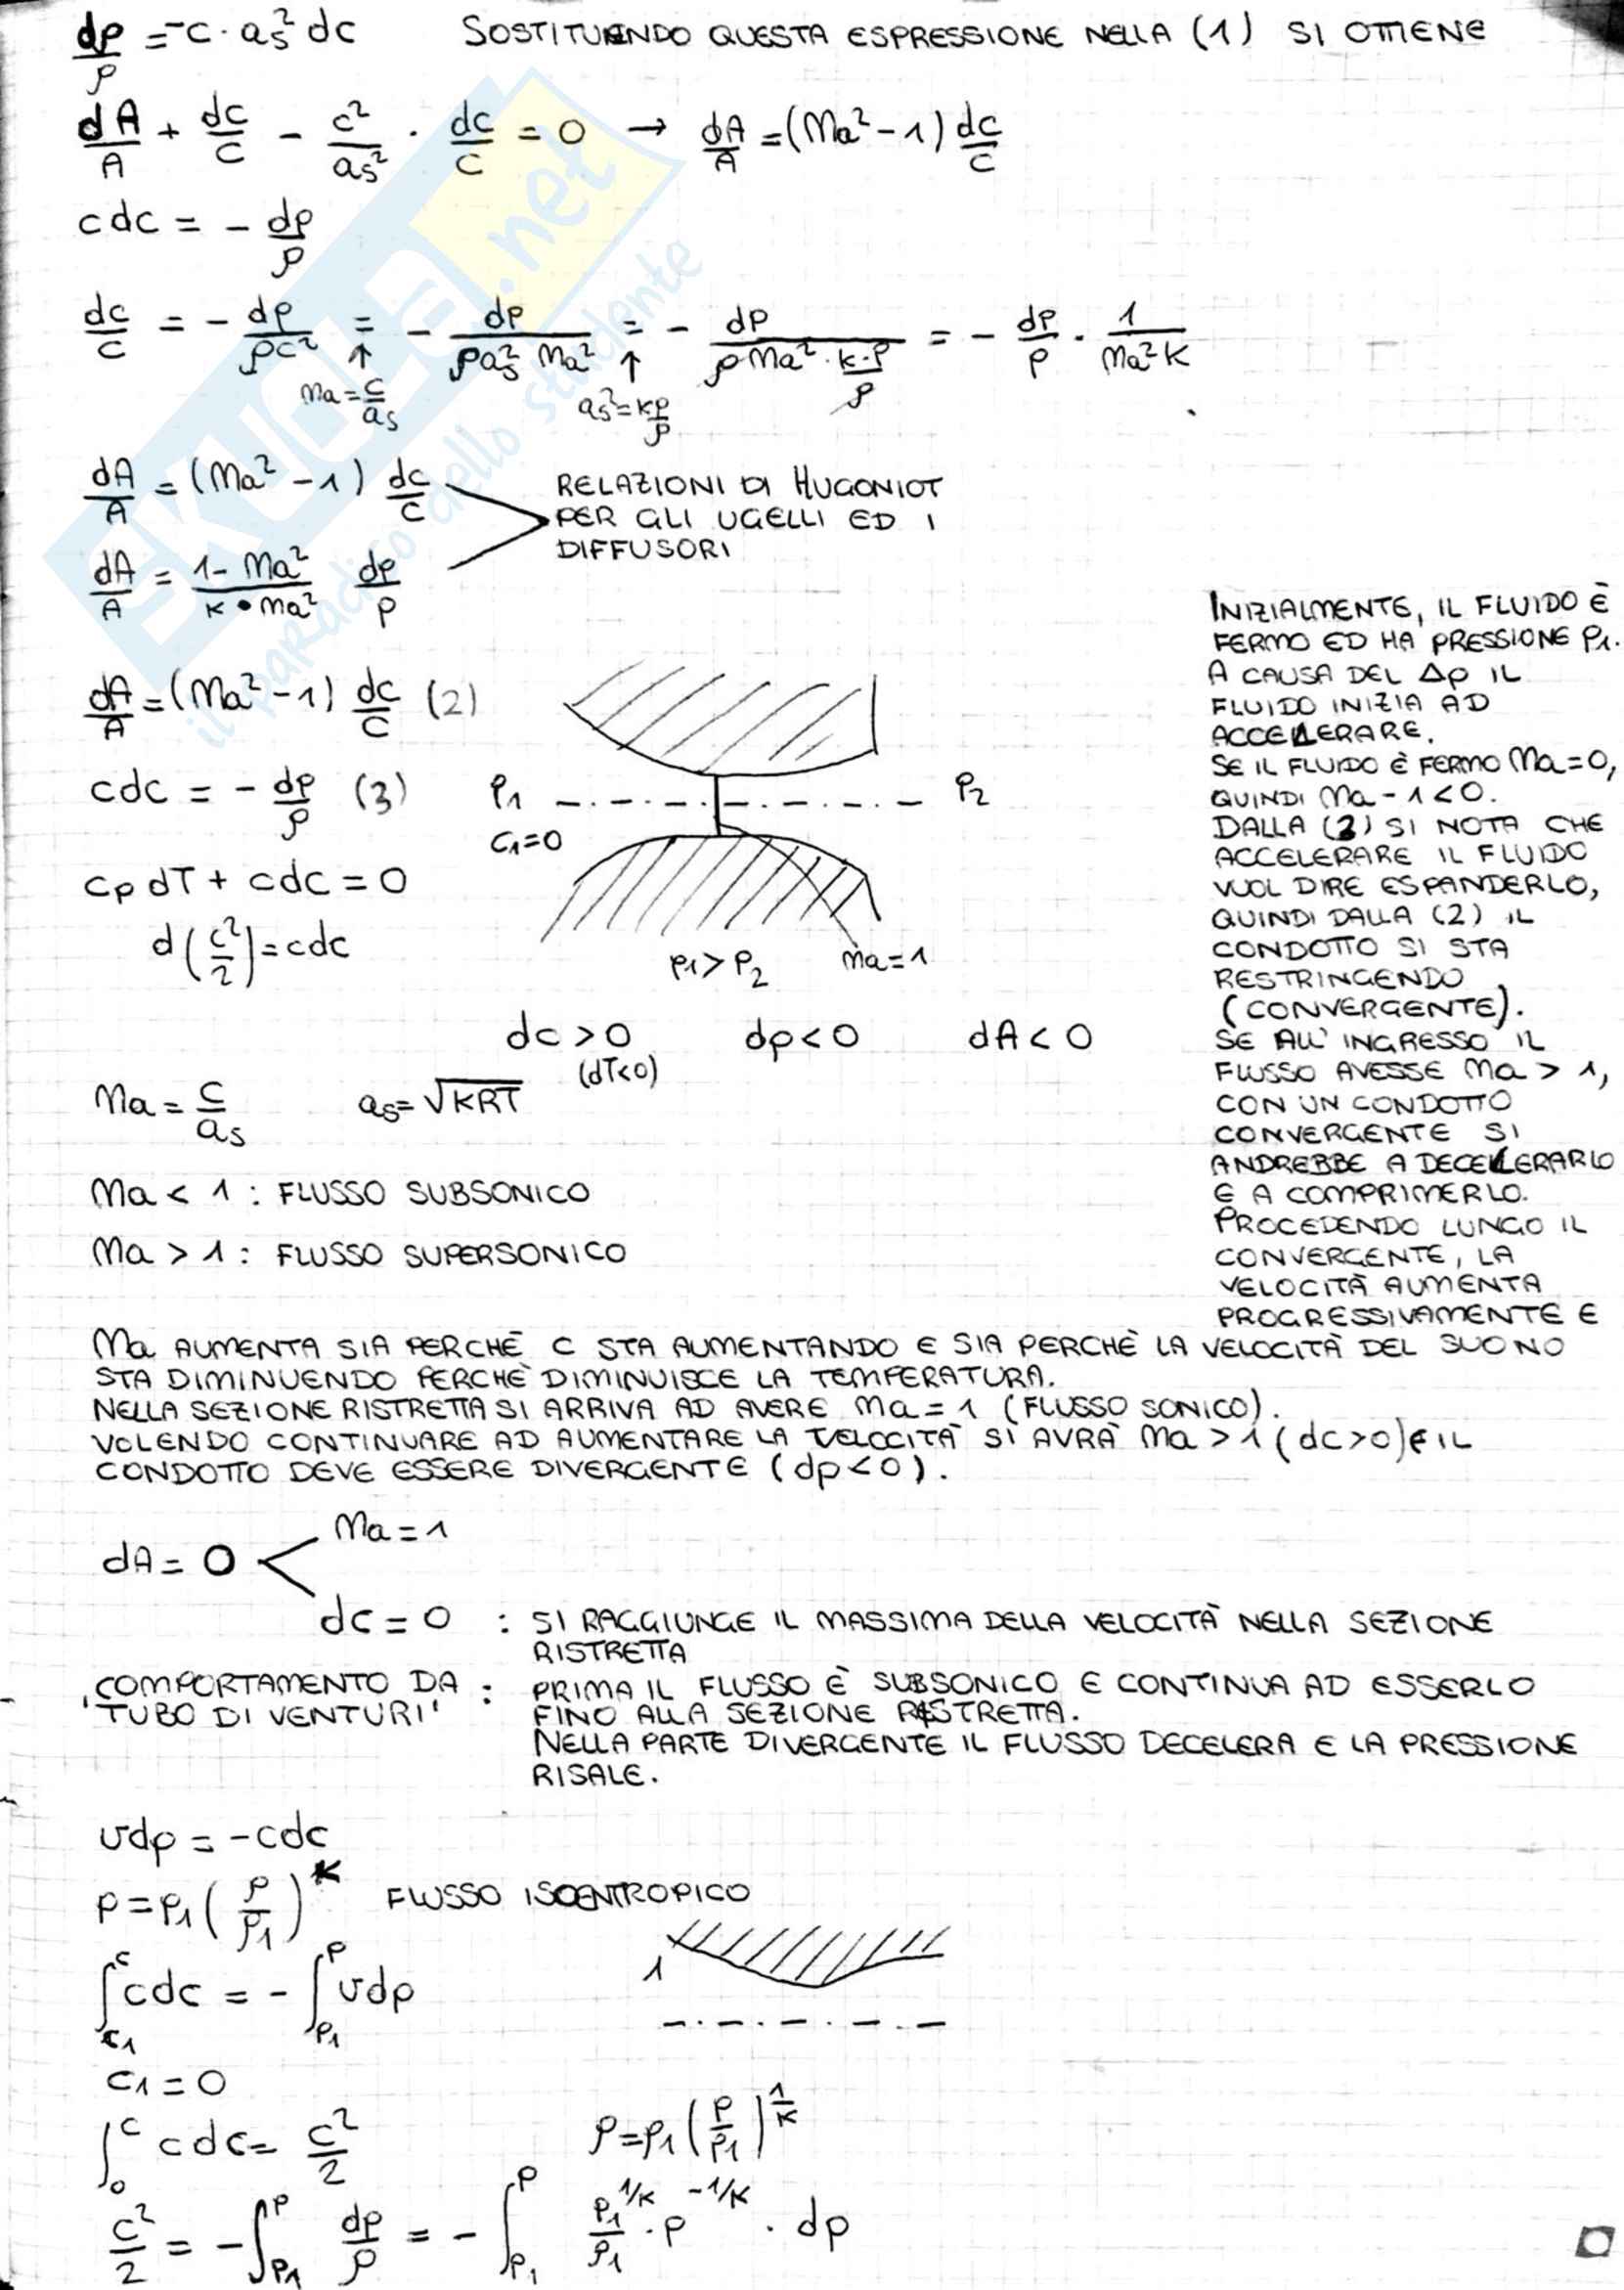 dρ/ρ = -c · as² dc SOSTITUENDO QUESTA ESPRESSIONE NELLA (1) SI OTTIENE
dA/A + dc/c - c²/as² · dc/c = 0 → dA/A = (Ma² - 1) dc/c
cdc = - dp/ρ
dc/c = - dp/ρc² = - dp/ρas² Ma² = - dp/ρ Ma² · k·p/ρ = - dp/p · 1/Ma² K
↑ ↑
Ma = c/as as² = kp/ρ
dA/A = (Ma² - 1) dc/c
RELAZIONI DI HUGONIOT
PER GLI UGELLI ED I
DIFFUSORI
dA/A = 1 - Ma²/K · Ma² dp/p
dA/A = (Ma² - 1) dc/c (2)
cdc = - dp/ρ (3)
cp dT + cdc = 0
d(c²/2) = cdc
p1 p2
c1=0
p1 > p2 Ma=1
dc > 0 dp < 0 dA < 0
(dT<0)
Ma = c/as as = √KRT
Ma < 1 : FLUSSO SUBSONICO
Ma > 1 : FLUSSO SUPERSONICO
INIZIALMENTE, IL FLUIDO È
FERMO ED HA PRESSIONE P1.
A CAUSA DEL Δp IL
FLUIDO INIZIA AD
ACCELERARE.
SE IL FLUIDO È FERMO Ma=0,
QUINDI Ma - 1 < 0.
DALLA (3) SI NOTA CHE
ACCELERARE IL FLUIDO
VUOL DIRE ESPANDERLO,
QUINDI DALLA (2) IL
CONDOTTO SI STA
RESTRINGENDO
(CONVERGENTE).
SE ALL'INGRESSO IL
FLUSSO AVESSE Ma > 1,
CON UN CONDOTTO
CONVERGENTE SI
ANDREBBE A DECELERARLO
E A COMPRIMERLO.
PROCEDENDO LUNGO IL
CONVERGENTE, LA
VELOCITÀ AUMENTA
PROGRESSIVAMENTE E
Ma AUMENTA SIA PERCHÈ C STA AUMENTANDO E SIA PERCHÈ LA VELOCITÀ DEL SUONO
STA DIMINUENDO PERCHÈ DIMINUISCE LA TEMPERATURA.
NELLA SEZIONE RISTRETTA SI ARRIVA AD AVERE Ma = 1 (FLUSSO SONICO).
VOLENDO CONTINUARE AD AUMENTARE LA VELOCITÀ SI AVRÀ Ma > 1 (dc>0) E IL
CONDOTTO DEVE ESSERE DIVERGENTE (dp<0).
Ma = 1
dA = 0
dc = 0 : SI RAGGIUNGE IL MASSIMA DELLA VELOCITÀ NELLA SEZIONE
RISTRETTA
'COMPORTAMENTO DA : PRIMA IL FLUSSO È SUBSONICO E CONTINUA AD ESSERLO
TUBO DI VENTURI' FINO ALLA SEZIONE RISTRETTA.
NELLA PARTE DIVERGENTE IL FLUSSO DECELERA E LA PRESSIONE
RISALE.
vdp = -cdc
p = p1 (ρ/ρ1)^K FLUSSO ISOENTROPICO
1
∫c1^c cdc = - ∫p1^p vdp
c1 = 0
∫0^c cdc = c²/2 ρ = ρ1 (p/p1)^1/K
c²/2 = - ∫p1^p dp/ρ = - ∫p1^p p1^1/K/ρ1 · p^-1/K · dp
SKUOLA.net
il paradiso dello studente